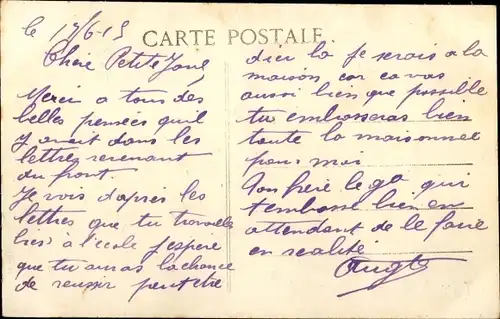 le 17/6-15
CARTE POSTALE
Chère Petite
Merci a tous des
belles pensées quil
y avait dans les
lettres revenant
du front.
Je vois d'après les
lettres que tu travailles
bien à l'école j'espère
que tu auras la chance
de reussir peut etre
dici la je serais a la
maison car ca va
aussi bien que possible
tu embrasseras bien
toute la maisonnee
pour moi
Ton frère le qui
t'embrasse bien en
attendant de le faire
en realité